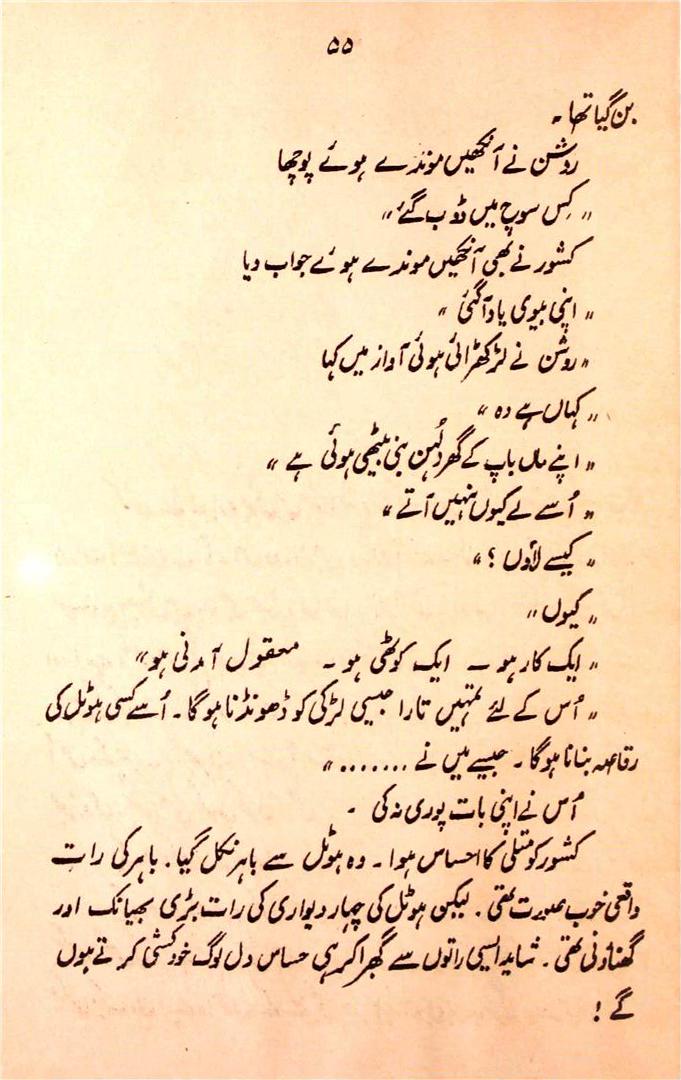 ۵۵
بن گیا تھا۔
روشن نے آنکھیں موندے ہوئے پوچھا
”کس سوچ میں ڈوب گئے“
کشور نے بھی آنکھیں موندے ہوئے جواب دیا
”اپنی بیوی یاد آگئی“
”روشن نے لڑکھڑائی ہوئی آواز میں کہا
”کہاں ہے وہ“
”اپنے ماں باپ کے گھر دُلہن بنی بیٹھی ہوئی ہے“
”اُسے لے کیوں نہیں آتے“
”کیسے لاؤں ؟“
”کیوں“
”ایک کار ہو ۔ ایک کوٹھی ہو ۔ معقول آمدنی ہو“
”اُس کے لئے تمہیں تارا جیسی لڑکی کو ڈھونڈنا ہوگا۔ اُسے کسی ہوٹل کی
رقاصہ بنانا ہوگا۔ جیسے میں نے ۔۔۔۔۔۔۔“
اُس نے اپنی بات پوری نہ کی ۔
کشور کو متلی کا احساس ہوا۔ وہ ہوٹل سے باہر نکل گیا۔ باہر کی رات
واقعی خوب صورت تھی۔ لیکن ہوٹل کی چہار دیواری کی رات بڑی بھیانک اور
گھناؤنی تھی۔ شاید ایسی راتوں سے گھبرا کر ہی حساس دل لوگ خودکشی کرتے ہوں
گے !